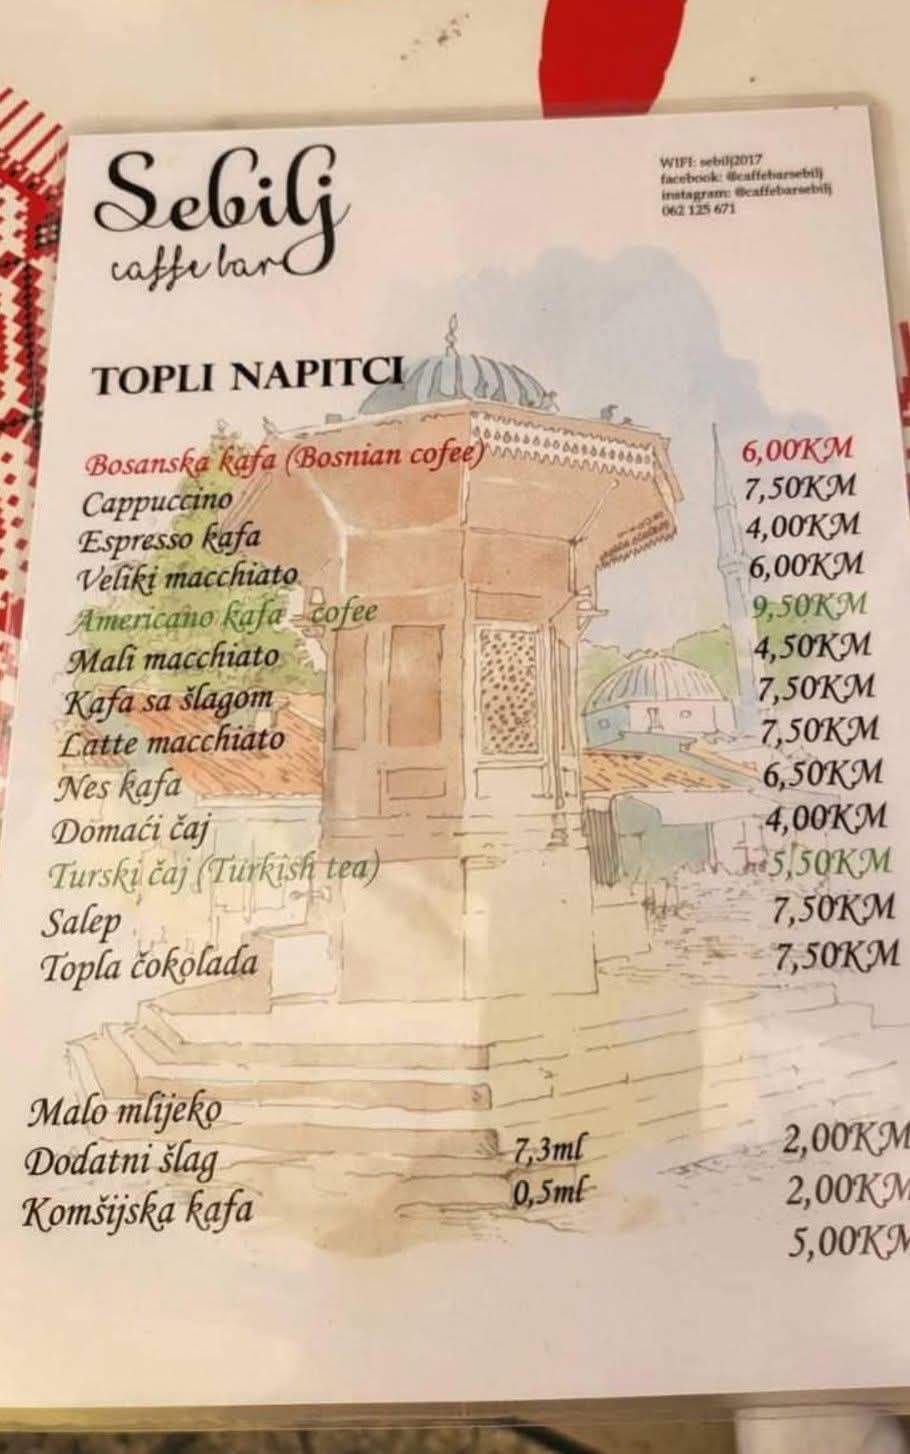 Sebilj
caffe bar
WIFI: sebilj2017
facebook: @caffebarsebilj
instagram: @caffebarsebilj
062 125 671
TOPLI NAPITCI
Bosanska kafa (Bosnian cofee) 6,00KM
Cappuccino 7,50KM
Espresso kafa 4,00KM
Veliki macchiato 6,00KM
Americano kafa - cofee 9,50KM
Mali macchiato 4,50KM
Kafa sa šlagom 7,50KM
Latte macchiato 7,50KM
Nes kafa 6,50KM
Domaći čaj 4,00KM
Turski čaj (Turkish tea) 5,50KM
Salep 7,50KM
Topla čokolada 7,50KM
Malo mlijeko 7,3ml 2,00KM
Dodatni šlag 0,5ml 2,00KM
Komšijska kafa 5,00KM